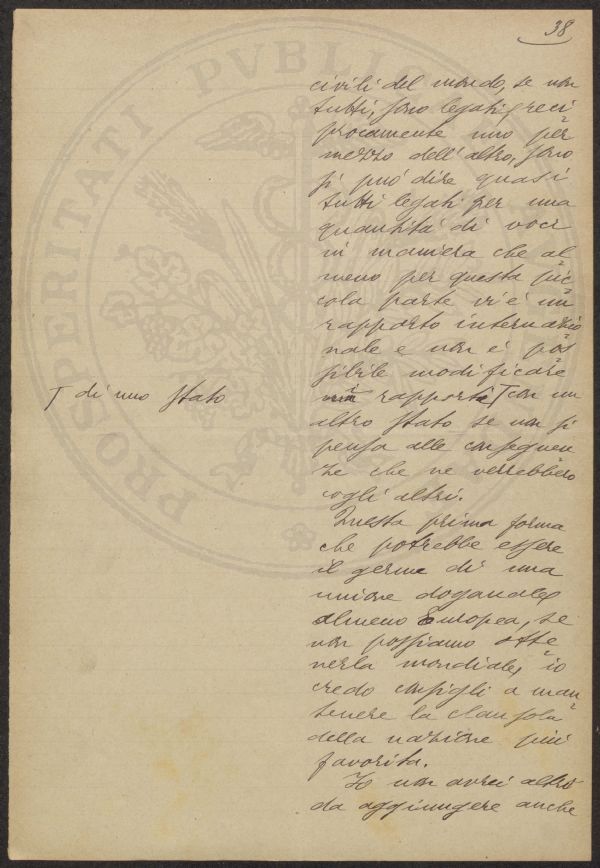 38
civili del mondo, se non
tutti, sono legati reci
procamente uno per
mezzo dell'altro, sono
si può dire quasi
tutti legati per una
quantità di voci
in maniera che al
meno per questa pic
cola parte vi è un
rapporto internazio
nale e non è pos
sibile modificare
i rapporti T con un
T di uno Stato
altro Stato se non si
pensa alle conseguen
ze che ne verrebbero
cogli altri.
Questa prima forma
che potrebbe essere
il germe di una
unione doganale,
almeno Europea, se
non possiamo otte
nerla mondiale, io
credo consigli a man
tenere la clausola
della nazione più
favorita.
Io non avrei altro
da aggiungere anche
PROSPERITATI PVBLIC